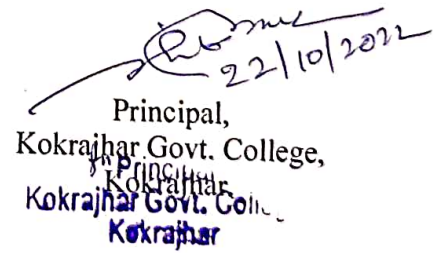 22/10/2022
Principal,
Kokrajhar Govt. College,
Kokrajhar
Principal
Kokrajhar Govt. Coll
Kokrajhar